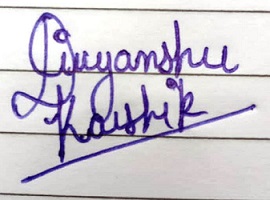 Divyanshu
Kaushik